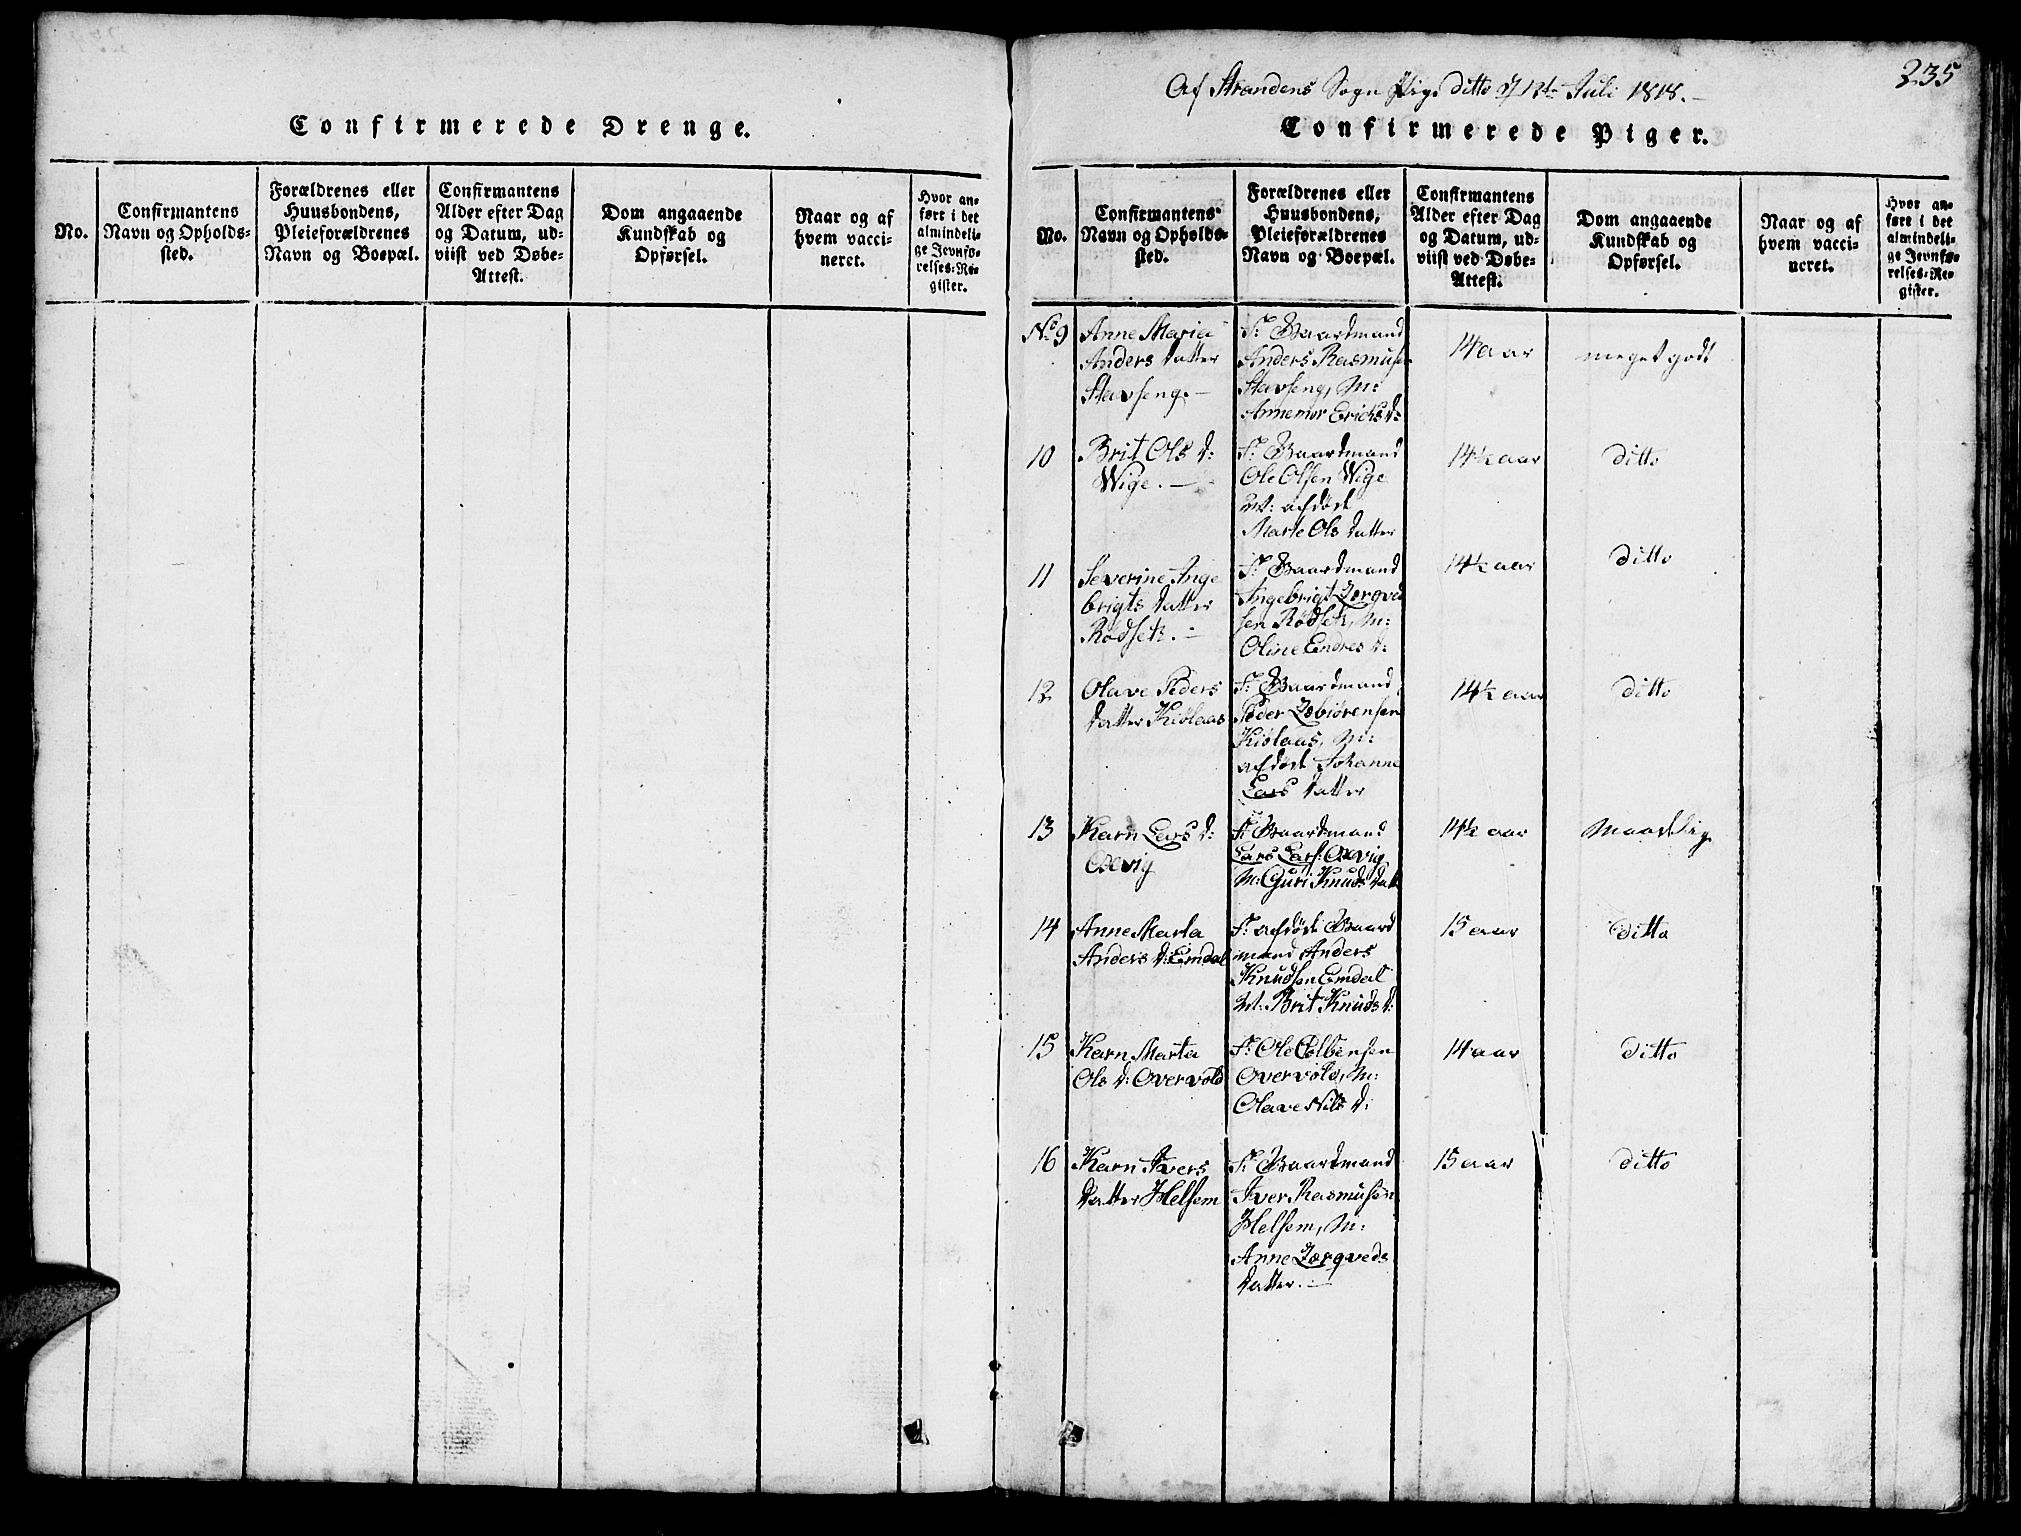 235
Confirmerede Drenge.
No.
Confirmantens
Navn og Opholds-
sted.
Forældrenes eller
Huusbondens,
Pleieforældrenes
Navn og Boepæl.
Confirmantens
Alder efter Dag
og Datum, ud-
viist ved Døbe-
Attest.
Dom angaaende
Kundskab og
Opførsel.
Naar og af
hvem vacci-
neret.
Hvor an-
ført i det
almindeli-
ge Jevnfø-
relses-Re-
gister.
Af Strandens Sogn Pig. ditto d/12te Juli 1818.-
Confirmerede Piger.
No.
Confirmantens
Navn og Opholds-
sted.
Forældrenes eller
Huusbondens,
Pleieforældrenes
Navn og Boepæl.
Confirmantens
Alder efter Dag
og Datum, ud-
viist ved Døbe-
Attest.
Dom angaaende
Kundskab og
Opførsel.
Naar og af
hvem vacci-
neret.
Hvor an-
ført i det
almindeli-
ge Jevnfø-
relses-Re-
gister.
No 9
Anne Maria
Anders datter
Stavseng.-
F: Gaardmand
Anders Rasmusen
Stavseng, M:
Annemor Erichs d:
14 aar
meget godt
10
Brit Ols d:
Wige.-
F: Gaardmand
Ole Olsen Wige
M: afdøde
Marte Ols datter
14½ aar
ditto
11
Severine Inge
brigts datter
Rødset.-
F: Gaardmand
Ingebrigt Torgved
sen Rødset, M:
Oline Endres d:
14½ aar
ditto
12
Olave Peders
datter Kiølaas
F: Gaardmand
Peder Esbiørensen
Kiølaas, M:
afdøde Johanne
Lars datter
14½ aar
ditto
13
Karn Lars d:
Oxvig
F: Gaardmand
Lars Lars: Oxvig
M: Guri Knuds datt
14½ aar
Maadelig
14
Anne Marta
Anders d: Emdal
F: afdøde Gaard
mand Anders
Knudsen Emdal
M: Brit Knuds d:
15 aar
ditto
15
Karn Marta
Ols d: Overvold
F: Ole Colbensen
Overvold, M:
Olave Nils d:
14 aar
ditto
16
Karn Ivers
datter Helsem
F: Gaardmand
Iver Rasmusen
Helsem, M:
Anne Torqveds
datter.-
15 aar
ditto